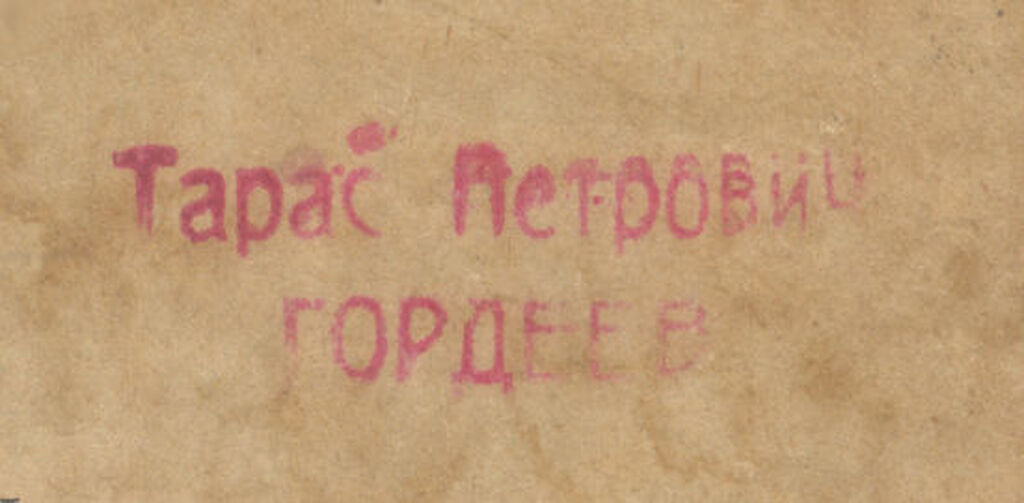 Тарас Петрович
ГОРДЕЕВ